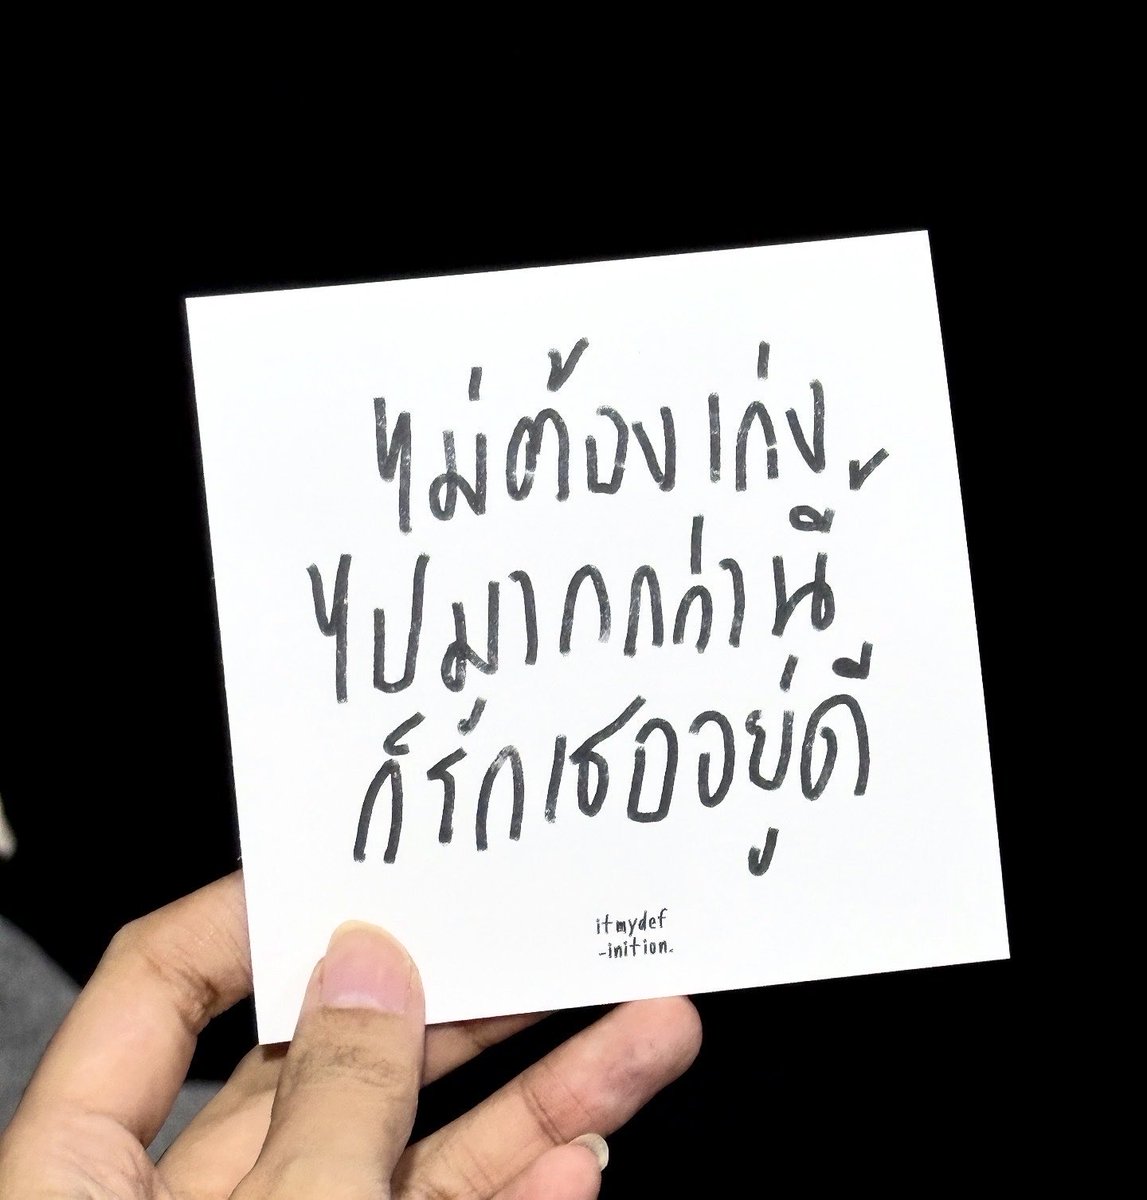 ไม่ต้องเก่ง
ไปมากกว่านี้
ก็รักเธออยู่ดี
itmydef
-inition.